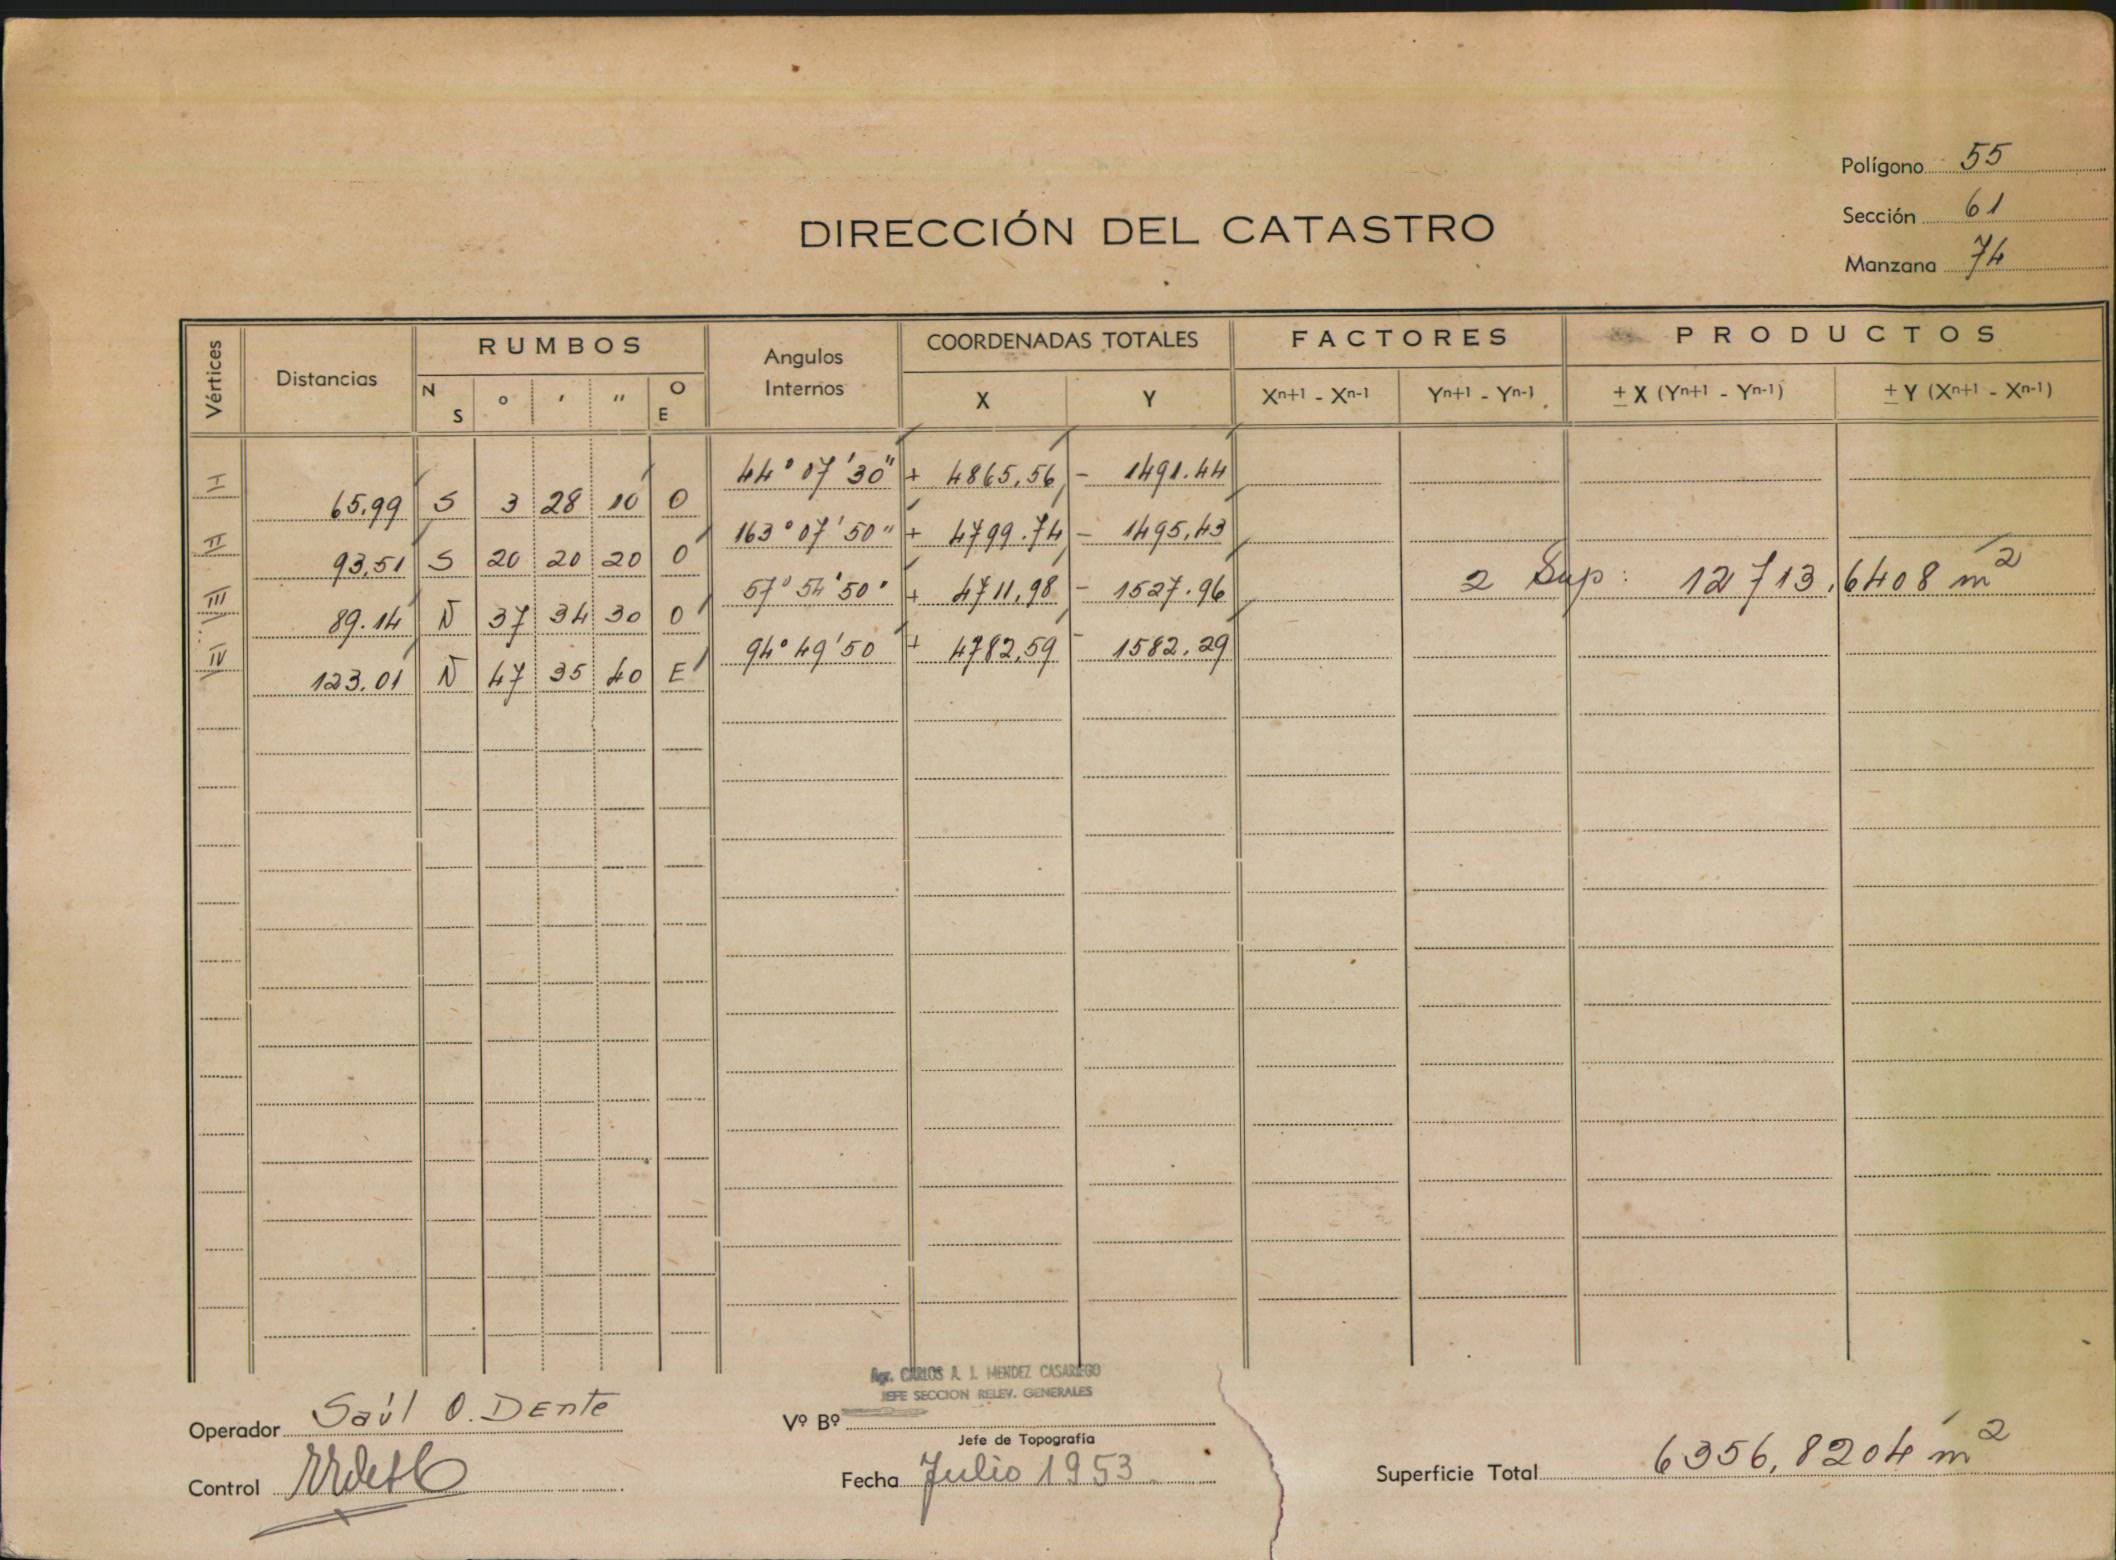 Polígono 55
Sección 61
Manzana 74
DIRECCIÓN DEL CATASTRO
Vértices Distancias RUMBOS Angulos Internos COORDENADAS TOTALES FACTORES PRODUCTOS
N S ° ′ ″ O E X Y Xn+1 - Xn-1 Yn+1 - Yn-1 ± X (Yn+1 - Yn-1) ± Y (Xn+1 - Xn-1)
I 44° 07' 30" + 4865,56 - 1491.44
65.99 S 3 28 10 O
II 163° 07' 50" + 4799.74 - 1495,43
93,51 S 20 20 20 O
III 57° 54' 50" + 4711,98 - 1527.96
2 Sup: 12713,6408 m2
89.14 N 37 34 30 O
IV 94° 49' 50 + 4782,59 - 1582.29
123.01 N 47 35 40 E
Agr. CARLOS A. J. MENDEZ CASARIEGO
JEFE SECCION RELEV. GENERALES
Operador Saúl O. Dente
Vº Bº
Jefe de Topografía
Control
Fecha Julio 1953
Superficie Total 6356,8204 m2